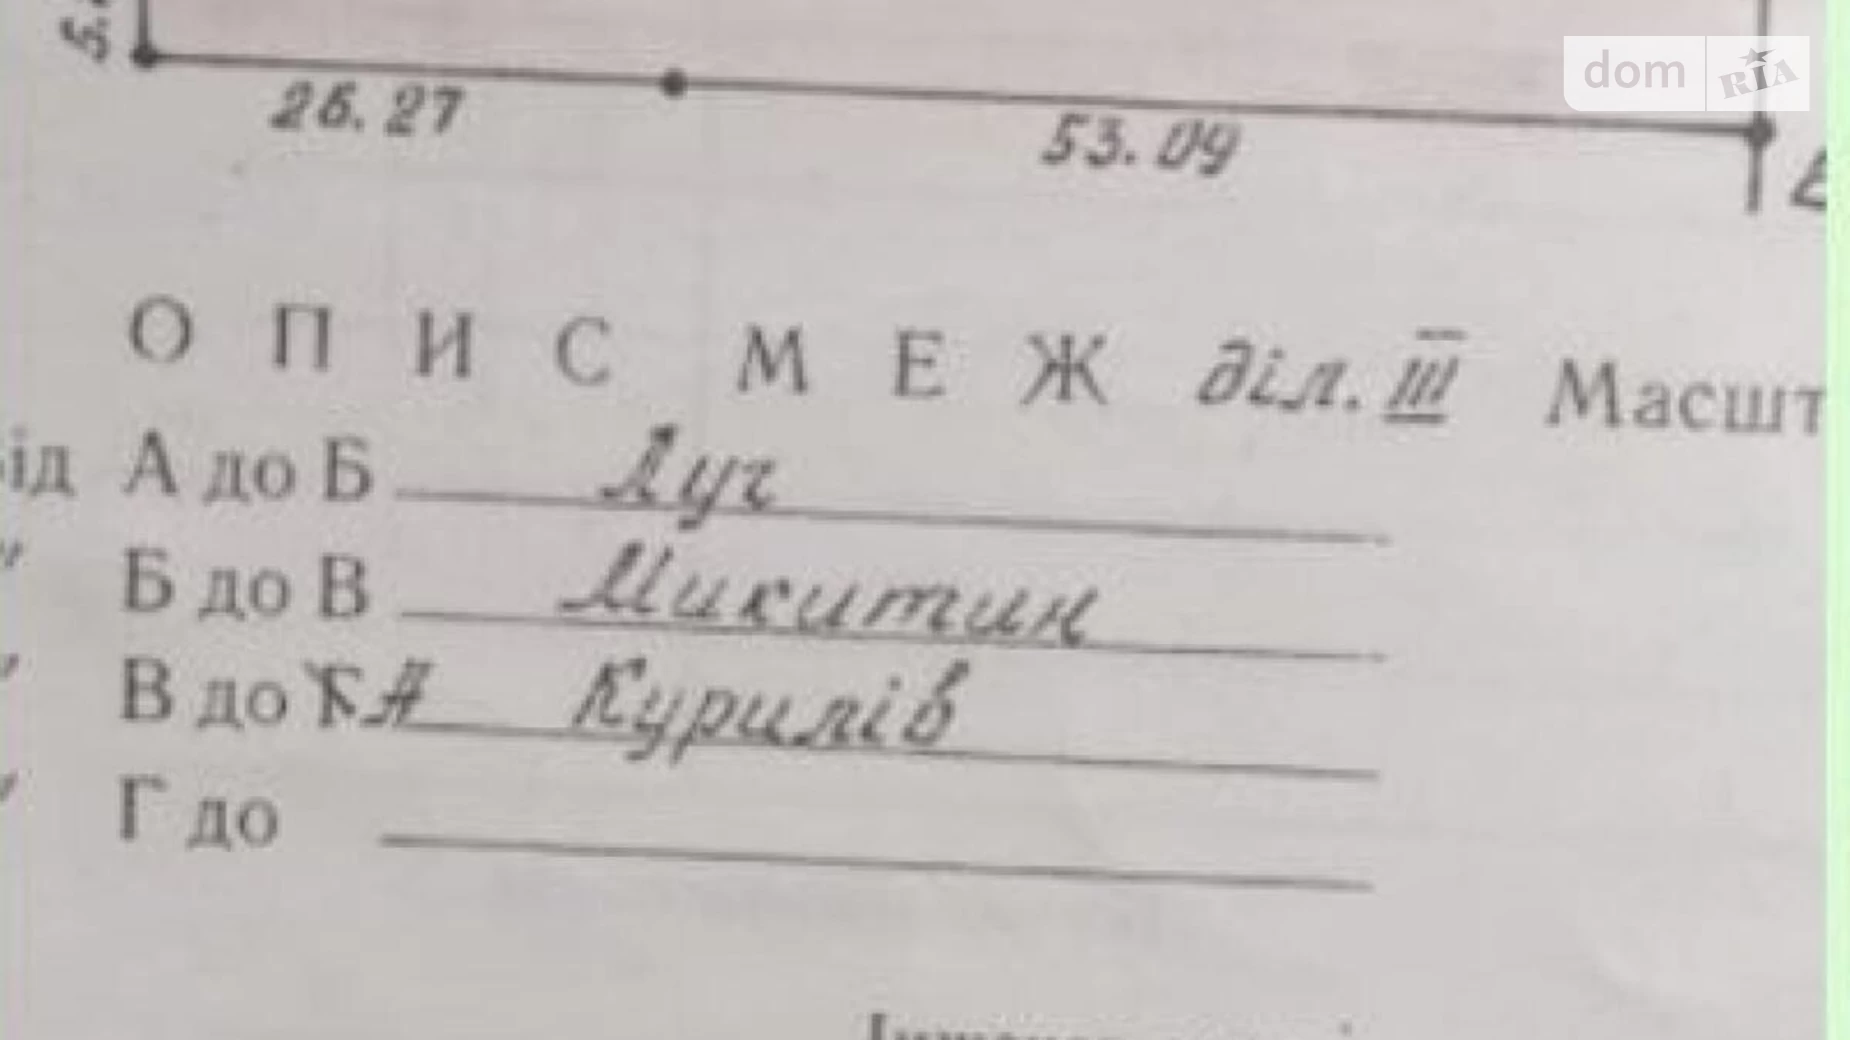 dom RIA
26.27
53.09
ОПИС МЕЖ діл. III Масшт
від А до Б Луг
" Б до В Микитин
" В до Г А Курилів
" Г до